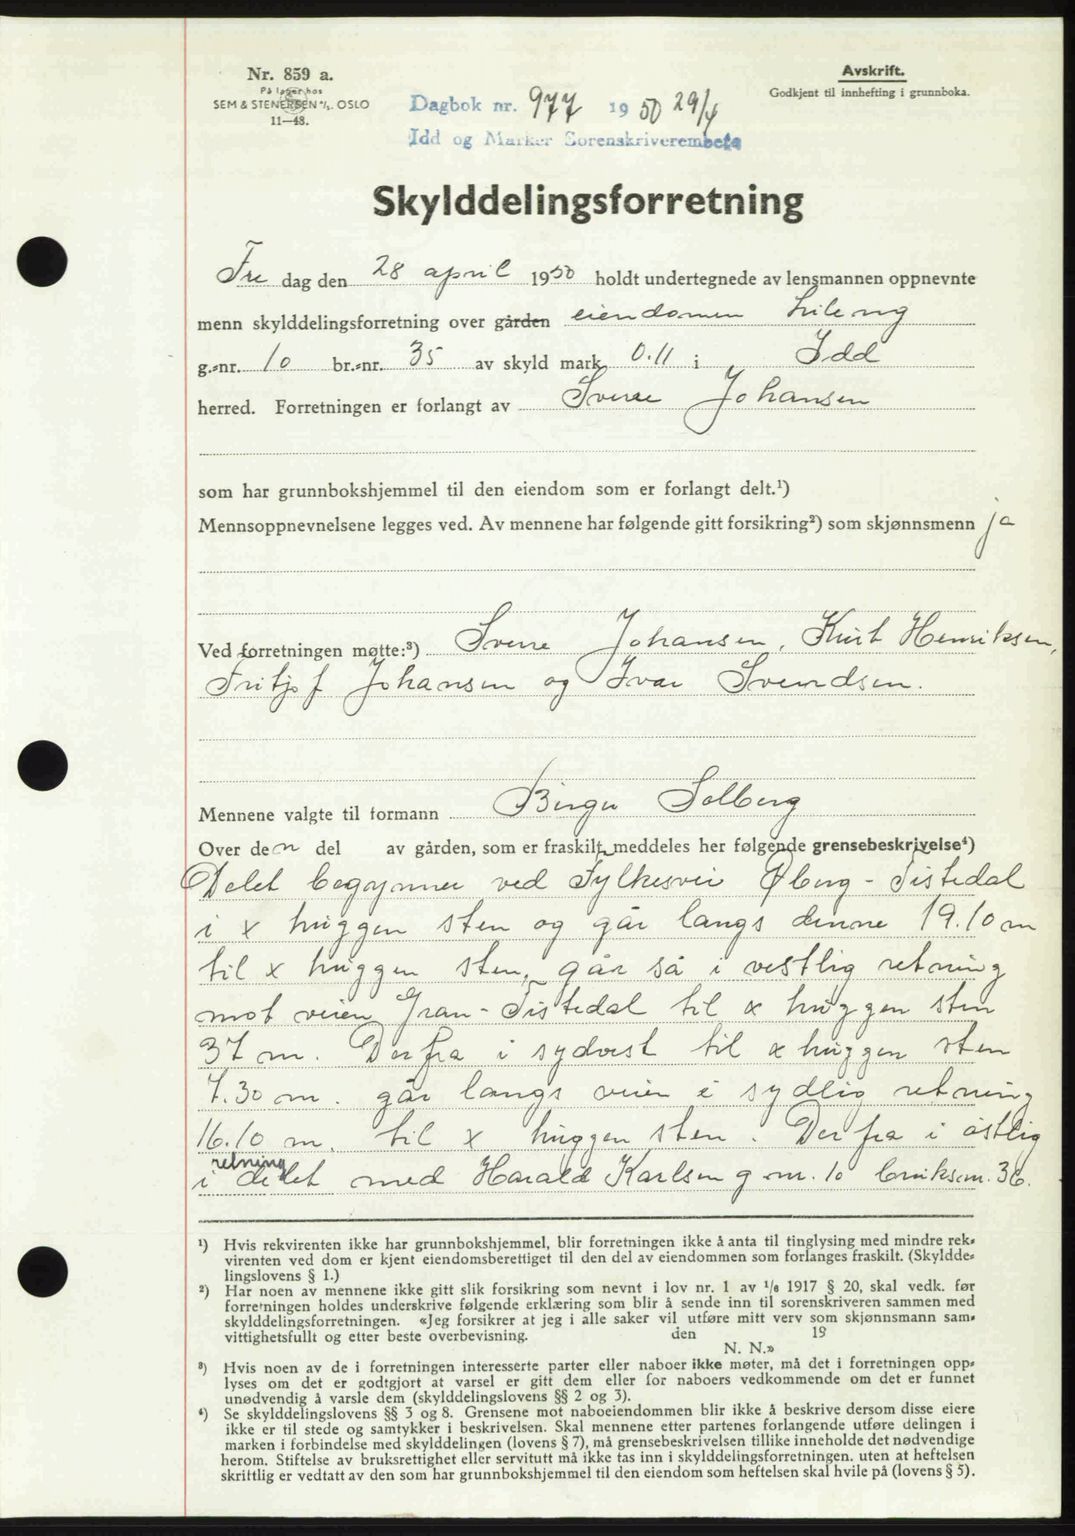 Nr. 859 a.
På lager hos
SEM & STENERSEN A/S. OSLO
11—48.
Avskrift.
Godkjent til innhefting i grunnboka.
Dagbok nr. 977 1950 29/4
Idd og Marker Sorenskriverembete
Skylddelingsforretning
Fre dag den 28 april 1950 holdt undertegnede av lensmannen oppnevnte
menn skylddelingsforretning over gården eiendomen
g.-nr. 10 br.-nr. 35 av skyld mark 0.11 i Idd
herred. Forretningen er forlangt av Sverre Johansen
som har grunnbokshjemmel til den eiendom som er forlangt delt.¹)
Mennsoppnevnelsene legges ved. Av mennene har følgende gitt forsikring²) som skjønnsmenn ja
Ved forretningen møtte:³) Sverre Johansen, Kurt Henriksen,
Fritjof Johansen og Ivar Svendsen.
Mennene valgte til formann Birger Solberg
Over den del av gården, som er fraskilt meddeles her følgende grensebeskrivelse⁴)
Delet begynner ved Fylkesvei Øberg - Tistedal
i x huggen sten og går langs denne 19.10 m
til x huggen sten, går så i vestlig retning
mot veien Gran - Tistedal til x huggen sten
37 m. Derfra i sydvest til x huggen sten
7.30 m. går langs veien i sydlig retning
16.10 m. til x huggen sten. Derfra i østlig
retning
i delet med Harald Karlsen g.nr. 10 bruksnr. 36.
¹) Hvis rekvirenten ikke har grunnbokshjemmel, blir forretningen ikke å anta til tinglysing med mindre rek-
virenten ved dom er kjent eiendomsberettiget til den del av eiendommen som forlanges fraskilt. (Skyldde-
lingslovens § 1.)
²) Har noen av mennene ikke gitt slik forsikring som nevnt i lov nr. 1 av 1/6 1917 § 20, skal vedk. før
forretningen holdes underskrive følgende erklæring som blir å sende inn til sorenskriveren sammen med
skylddelingsforretningen. «Jeg forsikrer at jeg i alle saker vil utføre mitt verv som skjønnsmann sam-
vittighetsfullt og etter beste overbevisning. den 19
N. N.»
³) Hvis noen av de i forretningen interesserte parter eller naboer ikke møter, må det i forretningen opp-
lyses om det er godtgjort at varsel er gitt dem eller for naboers vedkommende om det er funnet
unødvendig å varsle dem (skylddelingslovens §§ 2 og 3).
⁴) Se skylddelingslovens §§ 3 og 8. Grensene mot naboeiendommen blir ikke å beskrive dersom disse eiere
ikke er til stede og samtykker i beskrivelsen. Skal mennene etter partenes forlangende utføre delingen i
marken i forbindelse med skylddelingen (lovens § 7), må grensebeskrivelsen tillike inneholde det nødvendige
herom. Stiftelse av bruksrettighet eller servitutt må ikke tas inn i skylddelingsforretningen. uten at heftelsen
skriftlig er vedtatt av den som har grunnbokshjemmel til den eiendom som heftelsen skal hvile på (lovens § 5).